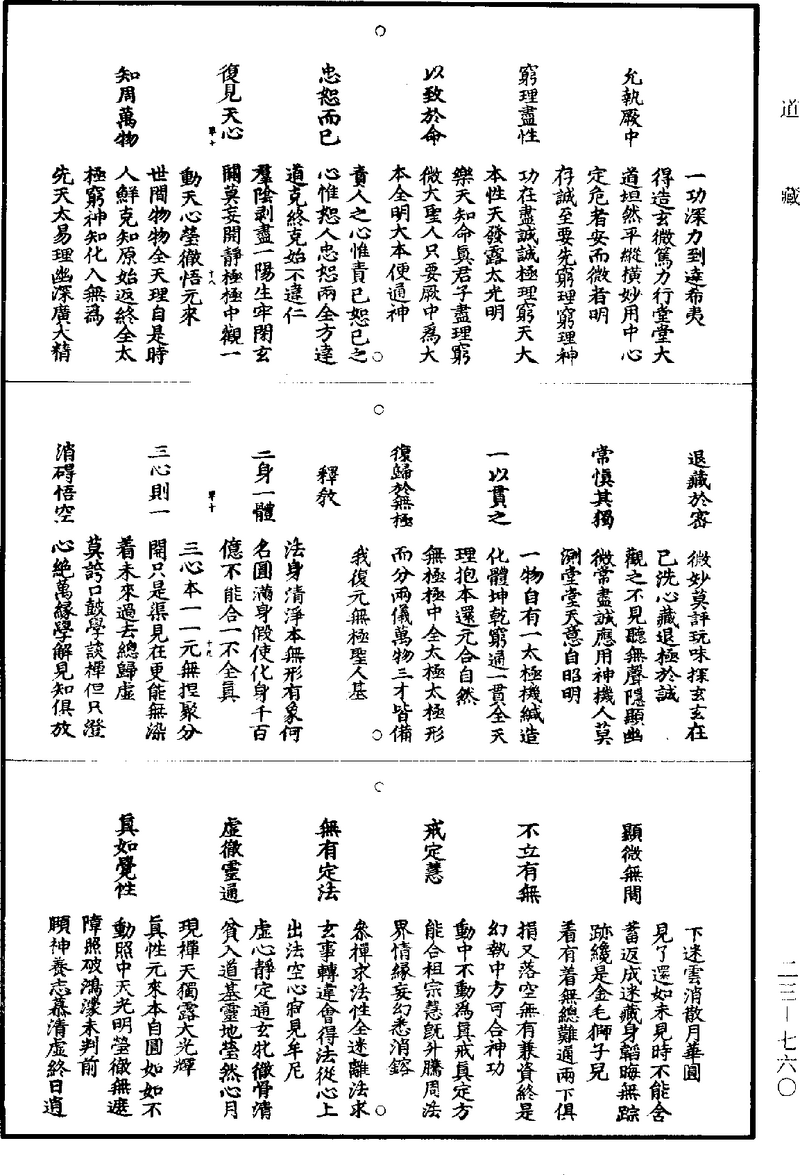 道藏
一功深力到達希夷
允執厥中
得造玄微篤力行堂堂大
道坦然平縱橫妙用中心
定危者安而微者明
存誠至要先窮理窮理神
窮理盡性
功在盡誠誠極理窮天大
本性天發露太光明
樂天知命眞君子盡理窮
以致於命
微大聖人只要厥中爲大
本全明大本便通神
責人之心惟責已恕已之
忠恕而已
心惟恕人忠恕兩全方達
道克終克始不違仁
羣陰剥盡一陽生牢閉玄
復見天心
關莫妄開靜極極中觀一
動天心瑩徹悟元來
世間物物全天理自是時
知周萬物
人鮮克知原始返終全太
極窮神知化入無爲
先天太易理幽深廣大精
退藏於密
微妙莫評玩味探玄玄在
已洗心藏退極於誠
觀之不見聽無聲隱顯幽
常愼其獨
微常盡誠應用神機人莫
測堂堂天意自昭明
一物自有一太極機緘造
一以貫之
化體坤乾窮通一貫全天
理抱本還元合自然
無極極中全太極太極形
復歸於無極
而分兩儀萬物三才皆備
我復元無極聖人基
釋教
法身清淨本無形有象何
二身一體
名圓滿身假使化身千百
億不能合一不全眞
三心本一一元無揑聚分
三心則一
開只是渠見在更能無染
着未來過去總歸虛
莫誇口鼓學談禪但只澄
消碍悟空
心絶萬緣學解見知俱放
下迷雲消散月華圓
見了還如未見時不能舍
顯微無間
蓄返成迷藏身韜晦無踪
跡纔是金毛獅子兒
着有着無總難適兩下俱
不立有無
捐又落空無有兼資終是
幻執中方可合神功
動中不動爲眞戒眞定方
戒定慧
能合祖宗慧旣升騰周法
界情緣妄幻悉消鎔
叅禪求法性全迷離法求
無有定法
玄事轉違會得法從心上
出法空心寂見牟尼
虛心靜定通玄牝徹骨清
虛徹靈通
貧入道基靈地瑩然心月
現禪天獨露大光輝
眞性元來本自圓如如不
眞如覺性
動照中天光明瑩徹無遮
障照破鴻濛未判前
頤神養志慕清虛終日逍
二三—七六〇